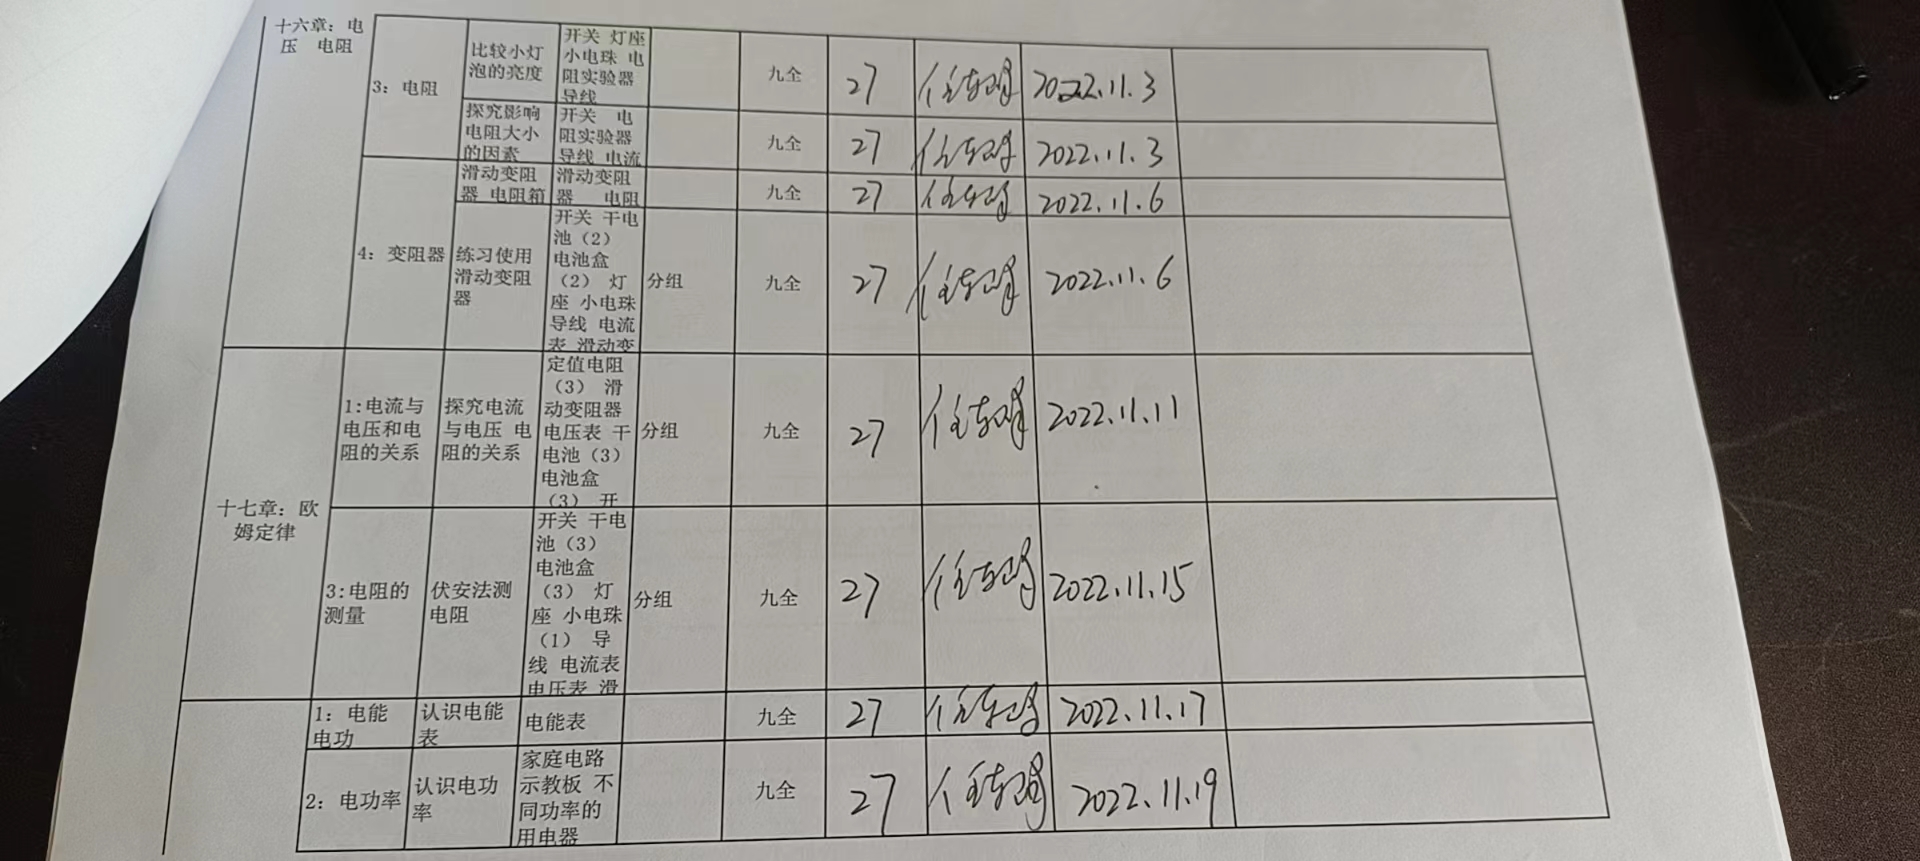 十六章：电
压 电阻
3：电阻
比较小灯
泡的亮度
开关 灯座
小电珠 电
阻实验器
导线
九全
27
2022.11.3
探究影响
电阻大小
的因素
开关 电
阻实验器
导线 电流
九全
27
2022.11.3
4：变阻器
滑动变阻
器 电阻箱
滑动变阻
器 电阻
九全
27
2022.11.6
练习使用
滑动变阻
器
开关 干电
池（2）
电池盒
（2） 灯
座 小电珠
导线 电流
表 滑动变
分组
九全
27
2022.11.6
十七章：欧
姆定律
1:电流与
电压和电
阻的关系
探究电流
与电压 电
阻的关系
定值电阻
（3） 滑
动变阻器
电压表 干
电池（3）
电池盒
（3） 开
分组
九全
27
2022.11.11
3:电阻的
测量
伏安法测
电阻
开关 干电
池（3）
电池盒
（3） 灯
座 小电珠
（1） 导
线 电流表
电压表 滑
分组
九全
27
2022.11.15
1：电能
电功
认识电能
表
电能表
九全
27
2022.11.17
2：电功率
认识电功
率
家庭电路
示教板 不
同功率的
用电器
九全
27
2022.11.19